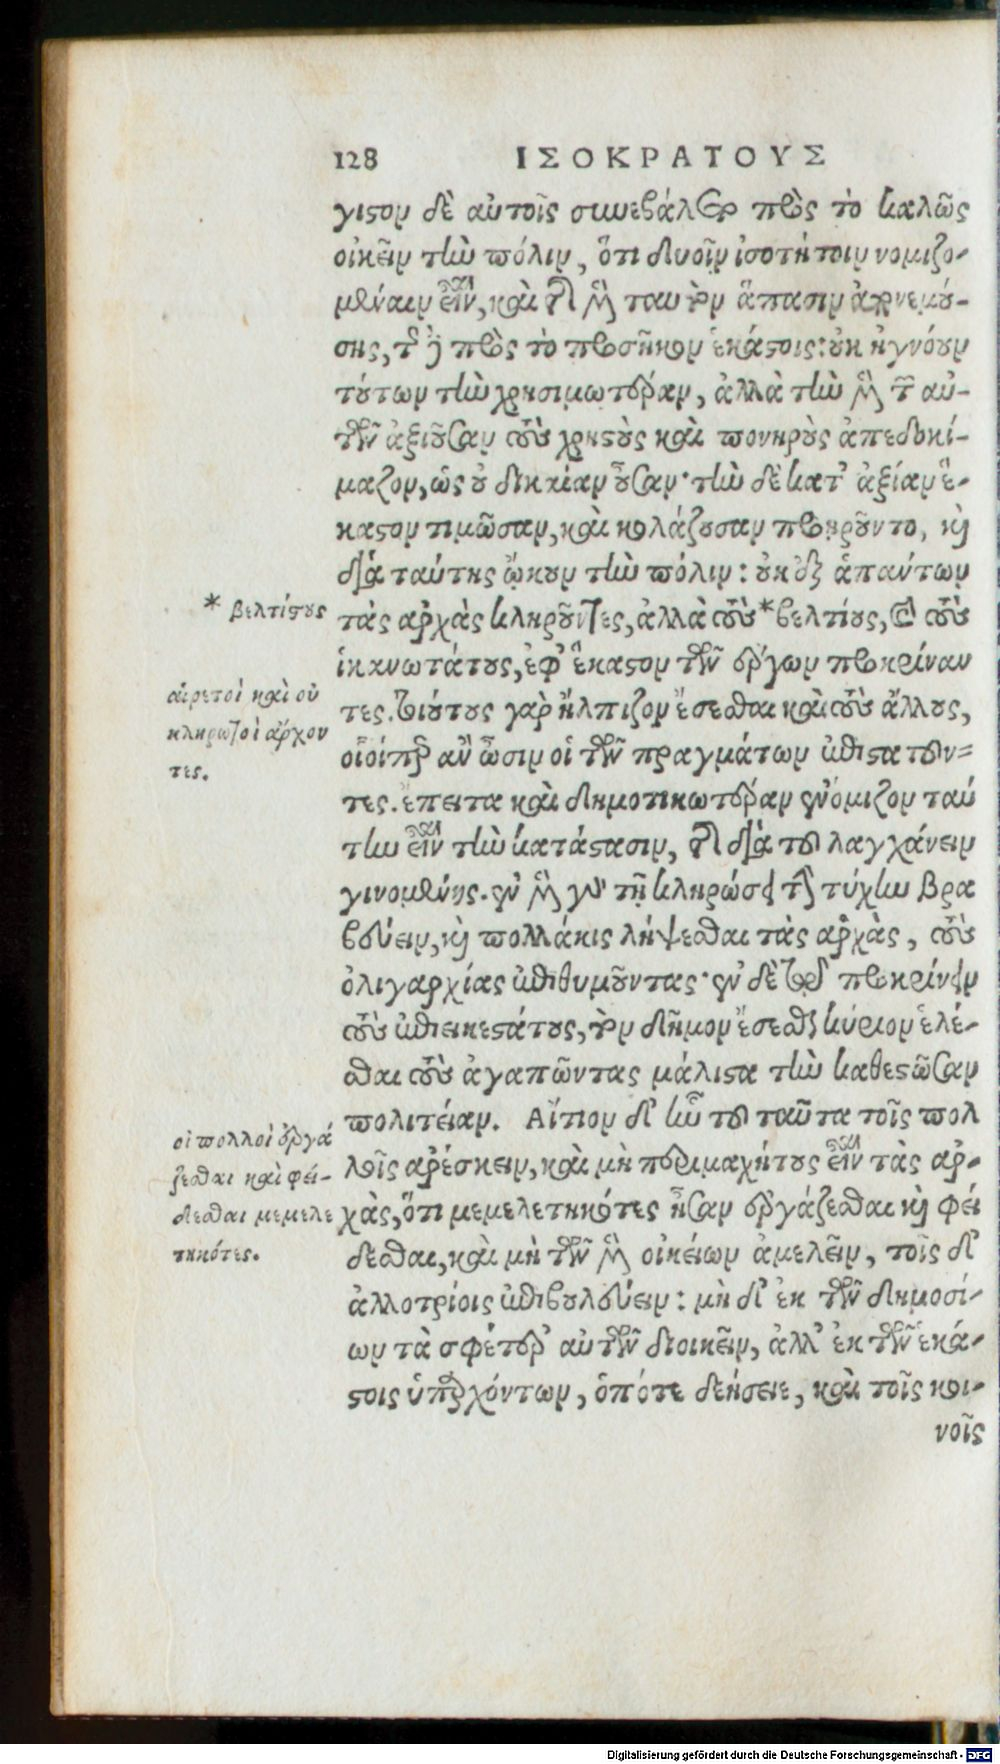 128 ΙΣΟΚΡΑΤΟΥΣ
γιςον δὲ αὐτοῖς συνεβάλετο πρὸς τὸ καλῶς
οἰκεῖν τὴν πόλιν, ὅτι δυοῖν ἰσοτήτοιν νομιζο-
μέναιν εἶναι, καὶ τῆς μὲν ταυτὸν ἅπασιν ἀπονεμού-
σης, τῆς δὲ πρὸς τὸ προσῆκον ἑκάςοις: οὐκ ἠγνόουν
τούτων τὴν χρησιμωτέραν, ἀλλὰ τὴν μὲν τῶν αὐ-
τῶν ἀξιοῦσαν τοὺς χρηςοὺς καὶ πονηροὺς ἀπεδοκί-
μαζον, ὡς οὐ δικαίαν οὖσαν· τὴν δὲ κατ' ἀξίαν ἕ-
καςον τιμῶσαν, καὶ κολάζουσαν προῃροῦντο, καὶ
διὰ ταύτης ᾤκουν τὴν πόλιν: οὐκ ἐξ ἁπάντων
* βελτίςους
τὰς ἀρχὰς κληροῦντες, ἀλλὰ τοὺς *βελτίους, καὶ τοὺς
ἱκανωτάτους, ἐφ' ἕκαςον τῶν ἔργων προκρίναν
αἱρετοὶ καὶ οὐ
κληρωτοὶ ἄρχον
τες.
τες. τοιούτους γὰρ ἤλπιζον ἔσεσθαι καὶ τοὺς ἄλλους,
οἷοίπερ ἂν ὦσιν οἱ τῶν πραγμάτων ἐπιςατοῦν=
τες. ἔπειτα καὶ δημοτικωτέραν ἐνόμιζον ταύ
την εἶναι τὴν κατάςασιν, τῆς διὰ τοῦ λαγχάνειν
γινομένης. ἐν μὲν γὰρ τῇ κληρώσει τὴν τύχην βρα
βεύειν, καὶ πολλάκις λήψεσθαι τὰς ἀρχὰς, τοὺς
ὀλιγαρχίας ἐπιθυμοῦντας· ἐν δὲ τῷ προκρίνειν
τοὺς ἐπιεικεςάτους, τὸν δῆμον ἔσεσθαι κύριον ἑλέ-
σθαι τοὺς ἀγαπῶντας μάλιςα τὴν καθεςῶσαν
πολιτείαν. Αἴτιον δ' ἦν τοῦ ταῦτα τοῖς πολ
οἱ πολλοὶ ἐργά
ζεσθαι καὶ φεί-
δεσθαι μεμελε
τηκότες.
λοῖς ἀρέσκειν, καὶ μὴ περιμαχήτους εἶναι τὰς ἀρ-
χὰς, ὅτι μεμελετηκότες ἦσαν ἐργάζεσθαι καὶ φεί
δεσθαι, καὶ μὴ τῶν μὲν οἰκείων ἀμελεῖν, τοῖς δ'
ἀλλοτρίοις ἐπιβουλεύειν: μὴ δ' ἐκ τῶν δημοσί-
ων τὰ σφέτερ' αὐτῶν διοικεῖν, ἀλλ' ἐκ τῶν ἑκά-
ςοις ὑπαρχόντων, ὁπότε δεήσειε, καὶ τοῖς κοι-
νοῖς
Digitalisierung gefördert durch die Deutsche Forschungsgemeinschaft - DFG